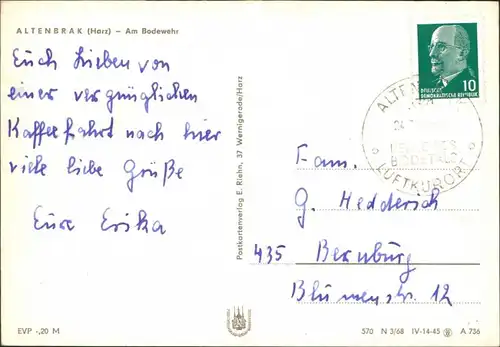 ALTENBRAK (Harz) – Am Bodewehr
Euch Lieben von
einer vergnüglichen
Kaffeefahrt nach hier
viele liebe Grüße
Eure Erika
EVP -,20 M
Postkartenverlag E. Riehn, 37 Wernigerode/Harz
10
DEUTSCHE
DEMOKRATISCHE REPUBLIK
BODETALS
LUFTKURORT
Fam.
G. Hedderich
435 Bernburg
Blumenstr. 12
570 N 3/68 IV-14-45 A 736